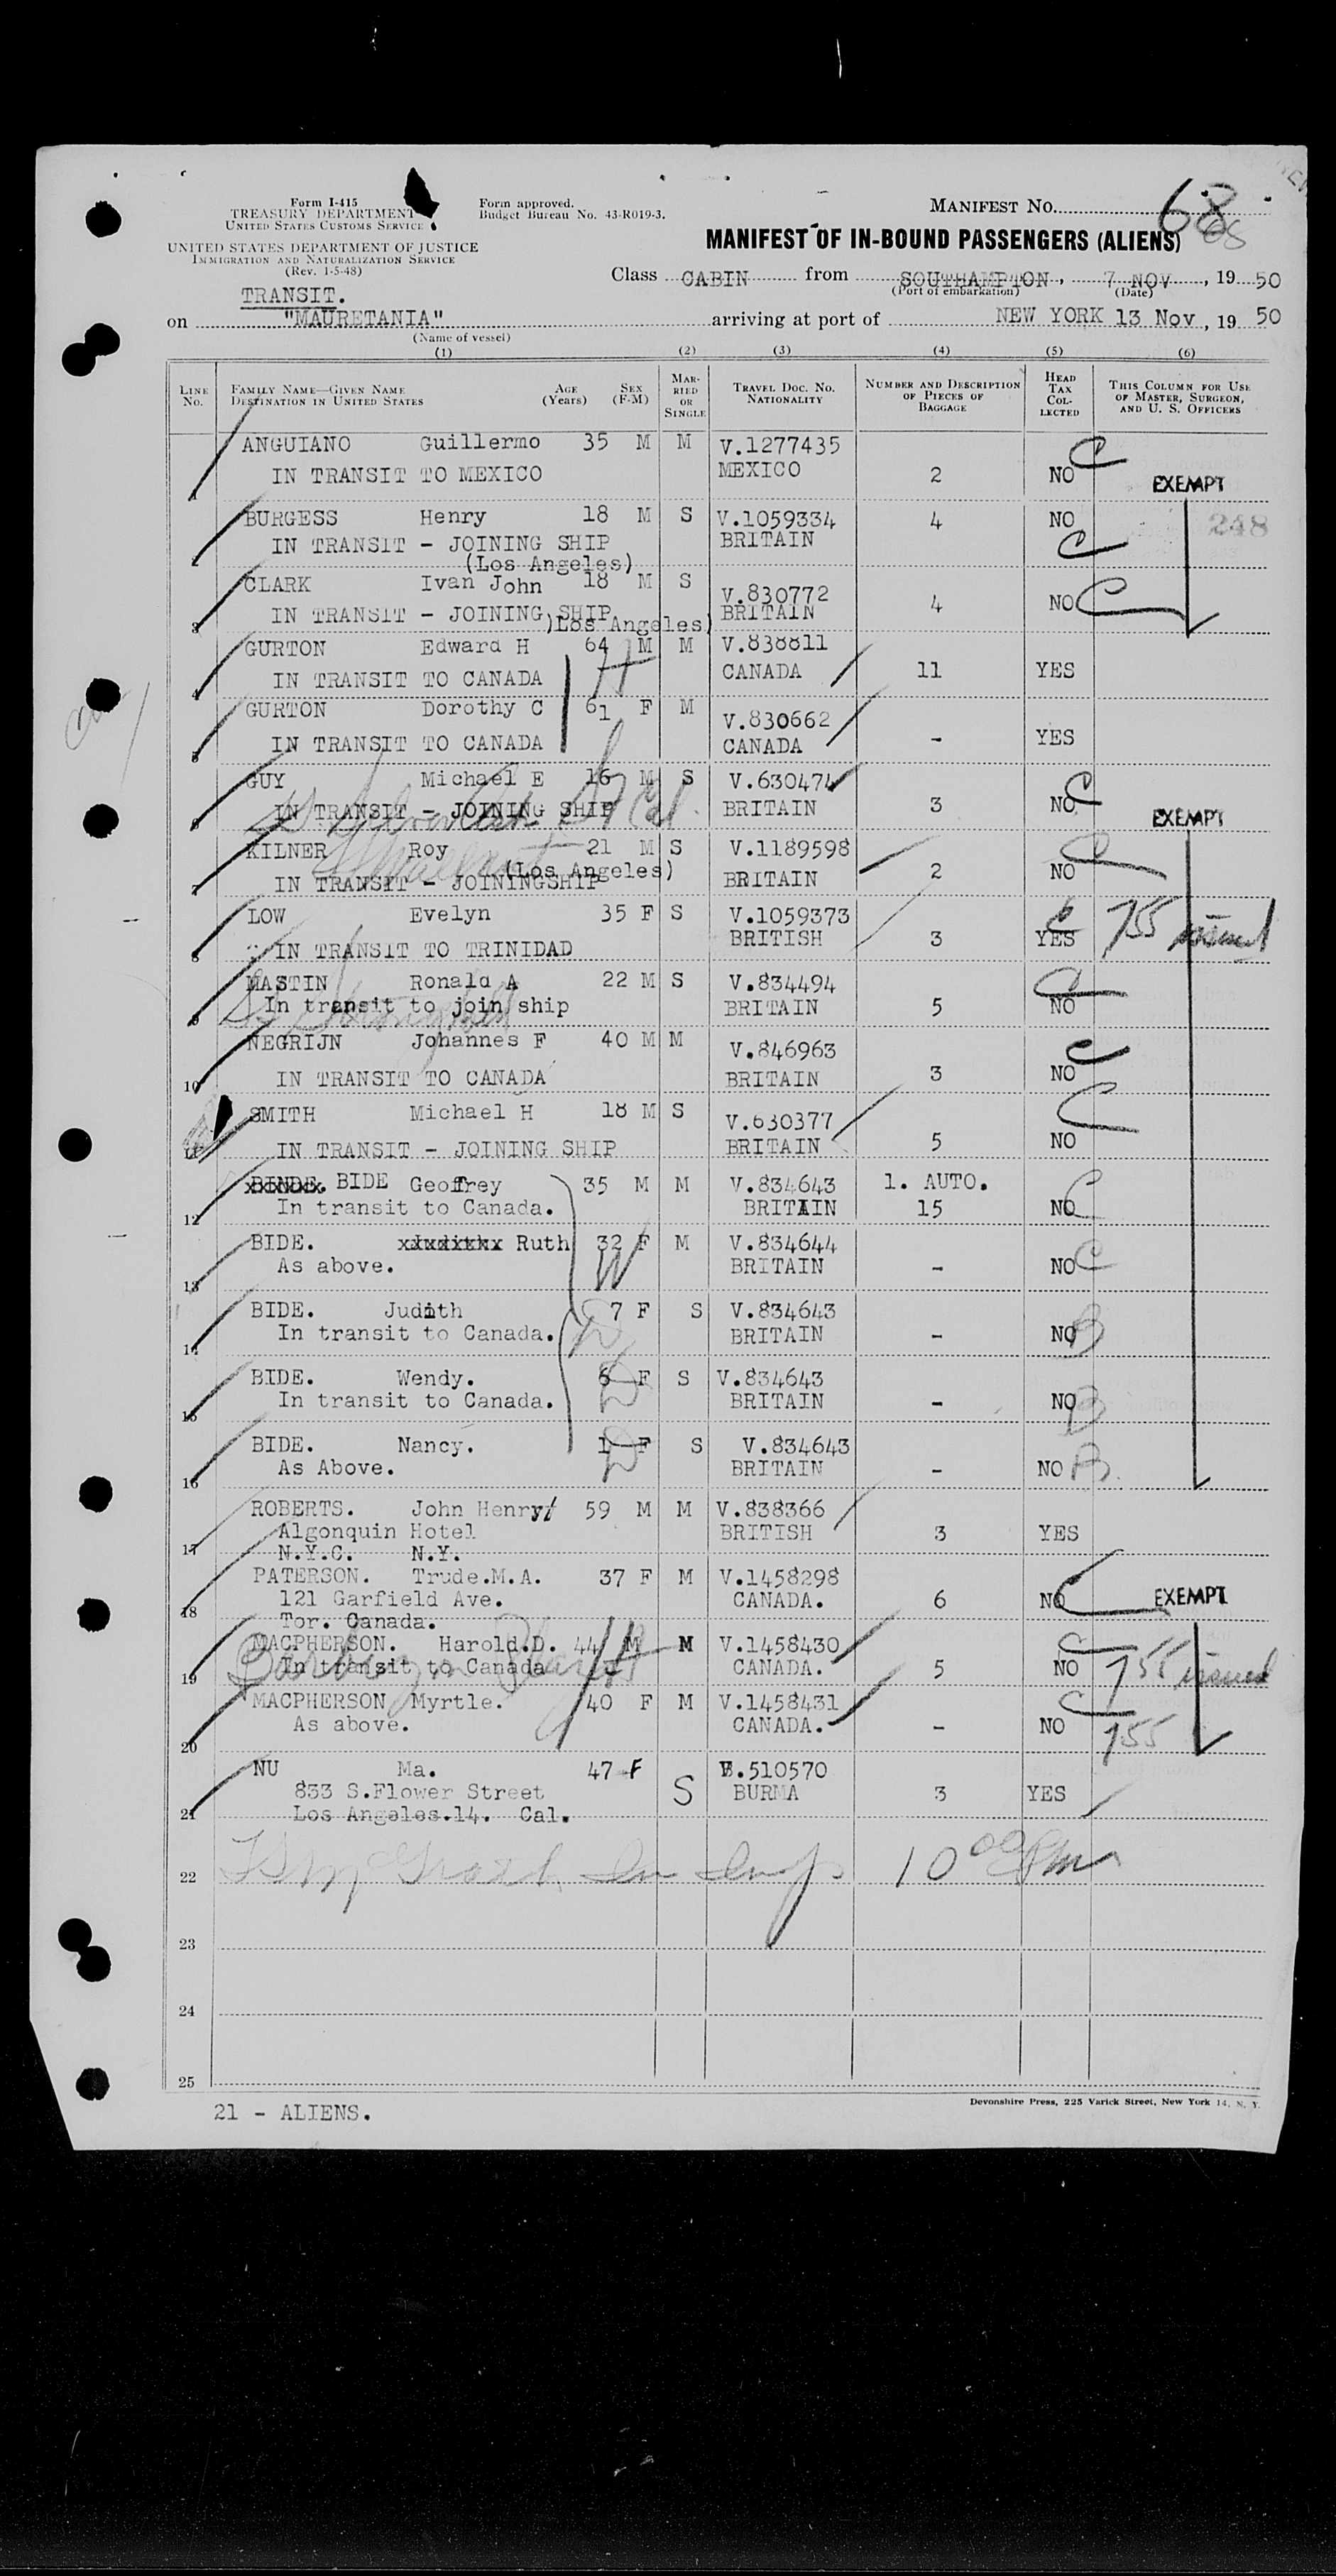 Form I-415
TREASURY DEPARTMENT
UNITED STATES CUSTOMS SERVICE
UNITED STATES DEPARTMENT OF JUSTICE
IMMIGRATION AND NATURALIZATION SERVICE
(Rev. 1-5-48)
Form approved.
Budget Bureau No. 43-R019-3.
MANIFEST No. 68
68
MANIFEST OF IN-BOUND PASSENGERS (ALIENS)
Class CABIN from SOUTHAMPTON, 7 NOV, 19 50
(Port of embarkation) (Date)
TRANSIT.
on "MAURETANIA" arriving at port of NEW YORK 13 Nov, 19 50
(Name of vessel)
(1) (2) (3) (4) (5) (6)
LINE No. FAMILY NAME—GIVEN NAME DESTINATION IN UNITED STATES AGE (Years) SEX (F-M) MARRIED OR SINGLE TRAVEL DOC. NO. NATIONALITY NUMBER AND DESCRIPTION OF PIECES OF BAGGAGE HEAD TAX COLLECTED THIS COLUMN FOR USE OF MASTER, SURGEON, AND U. S. OFFICERS
1 ANGUIANO Guillermo 35 M M V.1277435
IN TRANSIT TO MEXICO MEXICO 2 NO C EXEMPT
2 BURGESS Henry 18 M S V.1059334 4 NO 248
IN TRANSIT - JOINING SHIP BRITAIN C
(Los Angeles)
3 CLARK Ivan John 18 M S V.830772
IN TRANSIT - JOINING SHIP BRITAIN 4 NO C
)Los Angeles)
4 GURTON Edward H 64 M M V.838811
IN TRANSIT TO CANADA H CANADA 11 YES
5 GURTON Dorothy C 61 F M V.830662
IN TRANSIT TO CANADA CANADA - YES
6 GUY Michael E 16 M S V.630474
IN TRANSIT - JOINING SHIP BRITAIN 3 NO C EXEMPT
7 KILNER Roy 21 M S V.1189598
(Los Angeles)
IN TRANSIT - JOININGSHIP BRITAIN 2 NO C
8 LOW Evelyn 35 F S V.1059373
IN TRANSIT TO TRINIDAD BRITISH 3 YES C 755 issued
9 MASTIN Ronald A 22 M S V.834494
In transit to join ship BRITAIN 5 NO C
10 NEGRIJN Johannes F 40 M M V.846963
IN TRANSIT TO CANADA BRITAIN 3 NO C
11 SMITH Michael H 18 M S V.630377
IN TRANSIT - JOINING SHIP BRITAIN 5 NO C
12 BINDE. BIDE Geoffrey 35 M M V.834643 1. AUTO.
In transit to Canada. BRITAIN 15 NO C
13 BIDE. Ruth 32 F M V.834644
As above. W BRITAIN - NO C
14 BIDE. Judith 7 F S V.834643
In transit to Canada. D BRITAIN - NO B
15 BIDE. Wendy. 6 F S V.834643
In transit to Canada. D BRITAIN - NO B
16 BIDE. Nancy. 1 F S V.834643
As Above. D BRITAIN - NO B
17 ROBERTS. John Henry 59 M M V.838366
Algonquin Hotel BRITISH 3 YES
N.Y.C. N.Y.
18 PATERSON. Trude.M.A. 37 F M V.1458298
121 Garfield Ave. CANADA. 6 NO C EXEMPT
Tor. Canada.
19 MACPHERSON. Harold.D. 44 M M V.1458430
In transit to Canada H CANADA. 5 NO C 755 issued
20 MACPHERSON Myrtle. 40 F M V.1458431
As above. CANADA. - NO C 755
21 NU Ma. 47 F S V.510570
833 S.Flower Street BURMA 3 YES
Los Angeles.14. Cal.
22 10 00 Pm
23
24
25
21 - ALIENS.
Devonshire Press, 225 Varick Street, New York 14, N. Y.